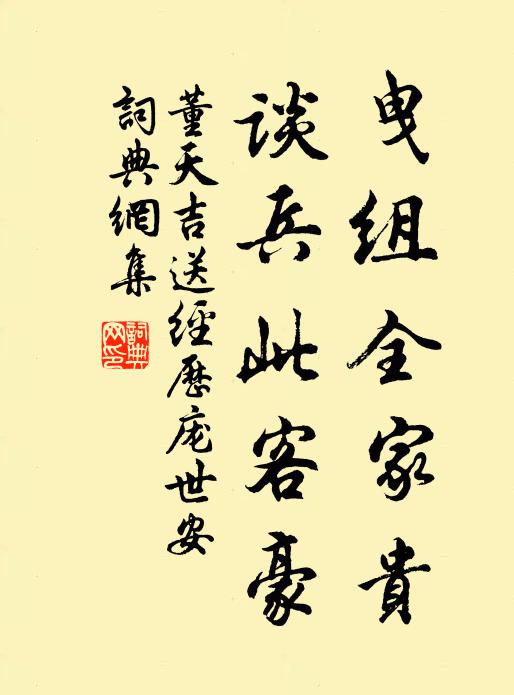 曳组全家貴
谈兵此客豪
董天吉送經歷庞世安
詞典網集
詞典网印